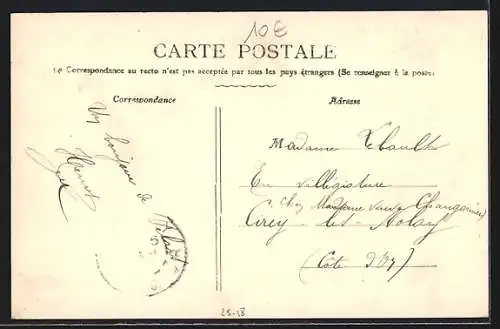 10€
CARTE POSTALE
La Correspondance au recto n'est pas acceptée par tous les pays étrangers (Se renseigner à la poste)
Correspondance
Adresse
Un bonjour de
Madame Thoault
En villégiature
chez Madame veuve Changarnier
Cirey-les-Nolay
(Cote d'Or)
25-18